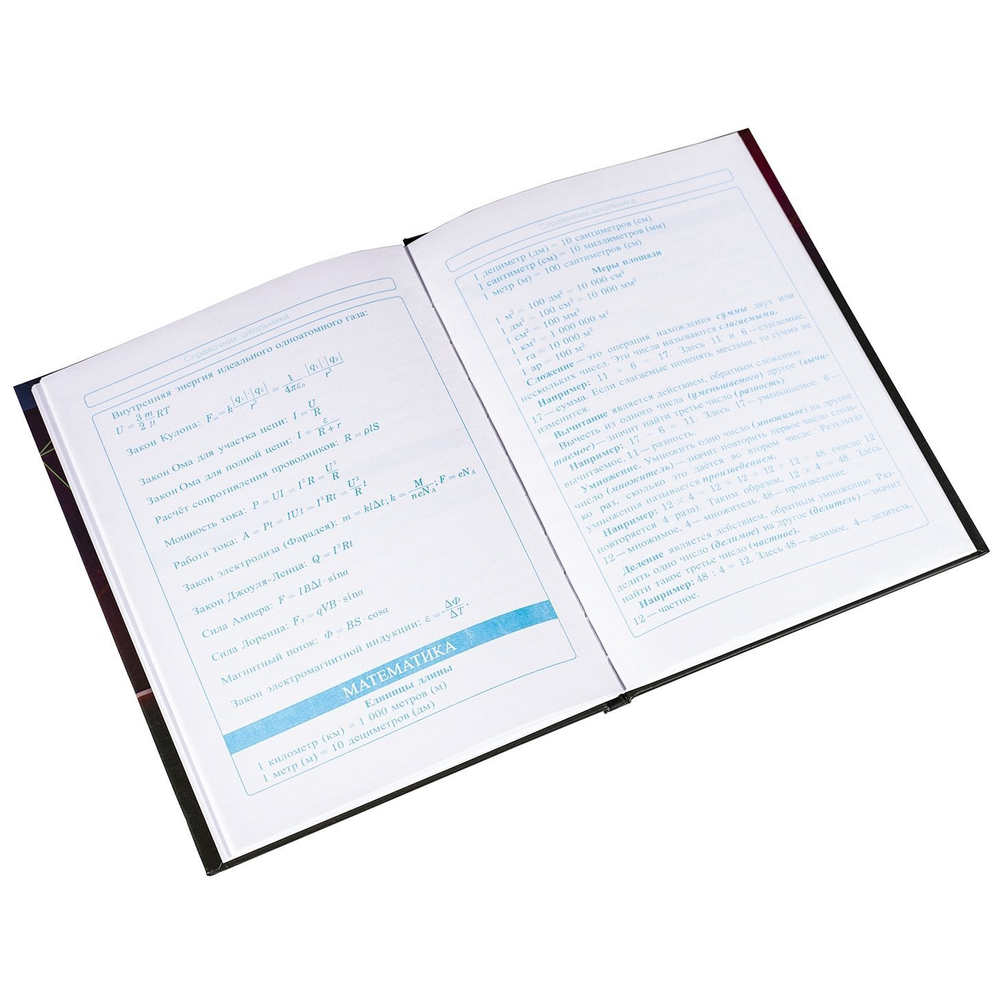 Справочник школьника
Внутренняя энергия идеального одноатомного газа:
U = 3/2 m/μ RT
Закон Кулона: Fэ = k |q₁| |q₂| / r² = 1/4πεε₀ |q₁| |q₂| / r²
Закон Ома для участка цепи: I = U/R
Закон Ома для полной цепи: I = ε/R + r
Расчёт сопротивления проводников: R = ρlS
Мощность тока: P = UI = I²R = U²/R
Работа тока: A = Pt = IUt = I²Rt = U²/R t
Закон электролиза (Фарадея): m = kIΔt; k = M/neNA; F = eNA
Закон Джоуля-Ленца: Q = I²Rt
Сила Ампера: F = IBΔl · sinα
Сила Лоренца: Fл = qVB · sinα
Магнитный поток: Φ = BS · cosα
Закон электромагнитной индукции: ε = - ΔΦ/ΔT.
МАТЕМАТИКА
Единицы длины
1 километр (км) = 1 000 метров (м)
1 метр (м) = 10 дециметров (дм)
Справочник школьника
1 дециметр (дм) = 10 сантиметров (см)
1 сантиметр (см) = 10 миллиметров (мм)
1 метр (м) = 100 сантиметров (см)
Меры площади
1 м² = 100 дм² = 10 000 см²
1 дм² = 100 см² = 10 000 мм²
1 см² = 100 мм²
1 км² = 1 000 000 м²
1 га = 10 000 м²
1 ар = 100 м²
Сложение — это операция нахождения суммы двух или
нескольких чисел. Эти числа называются слагаемыми.
Например: 11 + 6 = 17. Здесь 11 и 6 — слагаемые,
17 — сумма. Если слагаемые поменять местами, то сумма не
Вычитание является действием, обратным сложению.
Вычесть из одного числа (уменьшаемого) другое (вычи-
таемое) — значит найти третье число (разность).
Например: 17 - 6 = 11. Здесь 17 — уменьшаемое, 6 —
вычитаемое, 11 — разность.
Умножение. Умножить одно число (множимое) на другое
число (множитель) — значит повторить первое число столь-
ко раз, сколько это даётся во втором числе. Результат
умножения называется произведением.
Например: 12 × 4 = 12 + 12 + 12 + 12 = 48 (число 12
повторяется 4 раза). Таким образом, 12 × 4 = 48. Здесь
12 — множимое, 4 — множитель, 48 — произведение.
Деление является действием, обратным умножению. Раз-
делить одно число (делимое) на другое (делитель) — значит
найти такое третье число (частное).
Например: 48 : 4 = 12. Здесь 48 — делимое, 4 — делитель,
12 — частное.